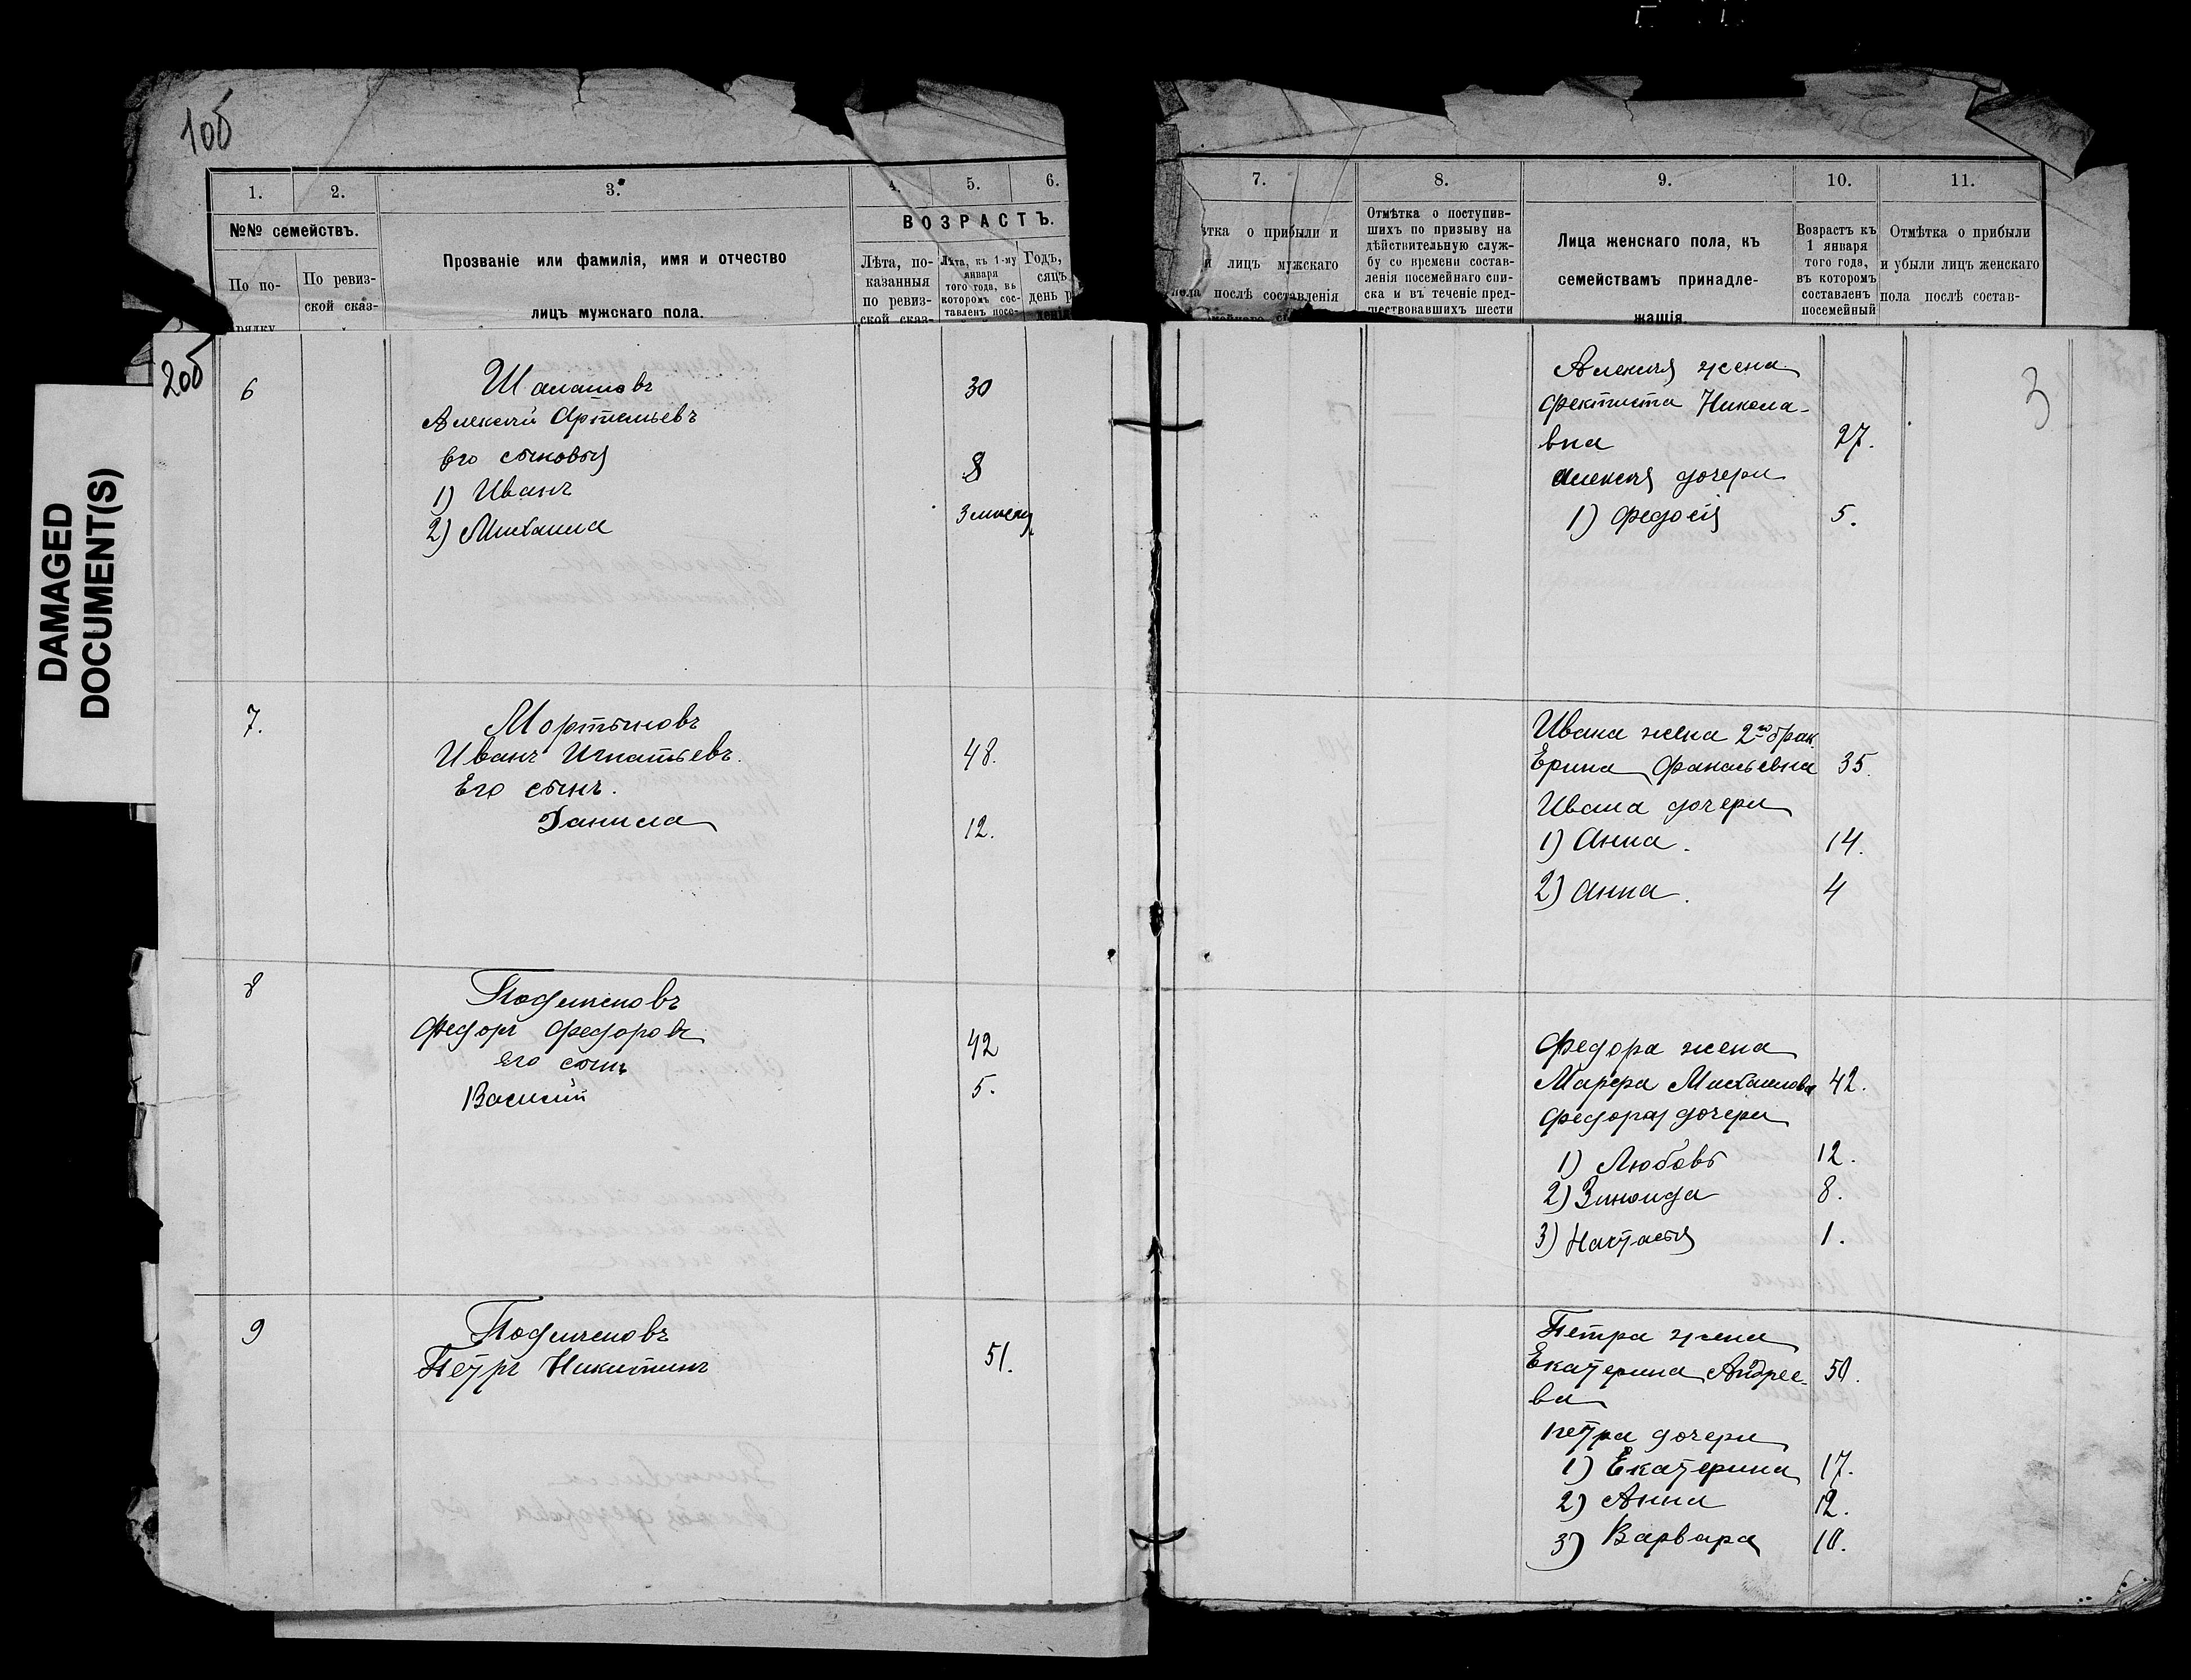 10б
1.
2.
3.
4.
5.
6.
№№ семействъ.
ВОЗРАСТЪ.
По по-
рядку
По ревиз-
ской сказ-
Прозваніе или фамилія, имя и отчество
лицъ мужскаго пола.
Лѣта, по-
казанныя
по ревиз-
ской сказ-
Лѣта, къ 1-му
января
того года, въ
которомъ сос-
тавленъ посе-
Годъ,
сяцъ
день р
7.
8.
9.
10.
11.
ѣтка о прибыли и
и лицъ мужскаго
пола послѣ составленія
Отмѣтка о поступив-
шихъ по призыву на
дѣйствительную служ-
бу со времени состав-
ленія посемейнаго спи-
ска и въ теченіе пред-
шествовавшихъ шести
Лица женскаго пола, къ
семействамъ принадле-
жащія.
Возрастъ къ
1 января
того года,
въ которомъ
составленъ
посемейный
Отмѣтка о прибыли
и убыли лицъ женскаго
пола послѣ состав-
DAMAGED
DOCUMENT(S)
20б
3
6
Шалашовъ
Алексѣй Артемьевъ 30
Его сыновья
1) Иванъ 8
2) Михаила 3 месяц
Алексѧ жена
Фектиста Никола-
вна 27.
Алексѧ дочери
1) Федосія 5.
7.
Мортыновъ
Иванъ Игнатьевъ. 48.
Его сынъ.
Данила 12.
Ивана жена 2го брак.
Ерина Фанасьевна 35.
Ивана дочери
1) Анна. 14.
2) Анна. 4
8
Федоръ Федоровъ 42
его сынъ
Василій 5.
Федора жена
Марфа Михаилова 42.
Федора дочери
1) Любовь 12.
2) Зиноида 8.
3) Настасья 1.
9
Петръ Никитинъ 51.
Петра жена
Екатерина Андрее- 50.
ва
Петра дочери
1) Екатерина 17.
2) Анна 12.
3) Варвара 10.